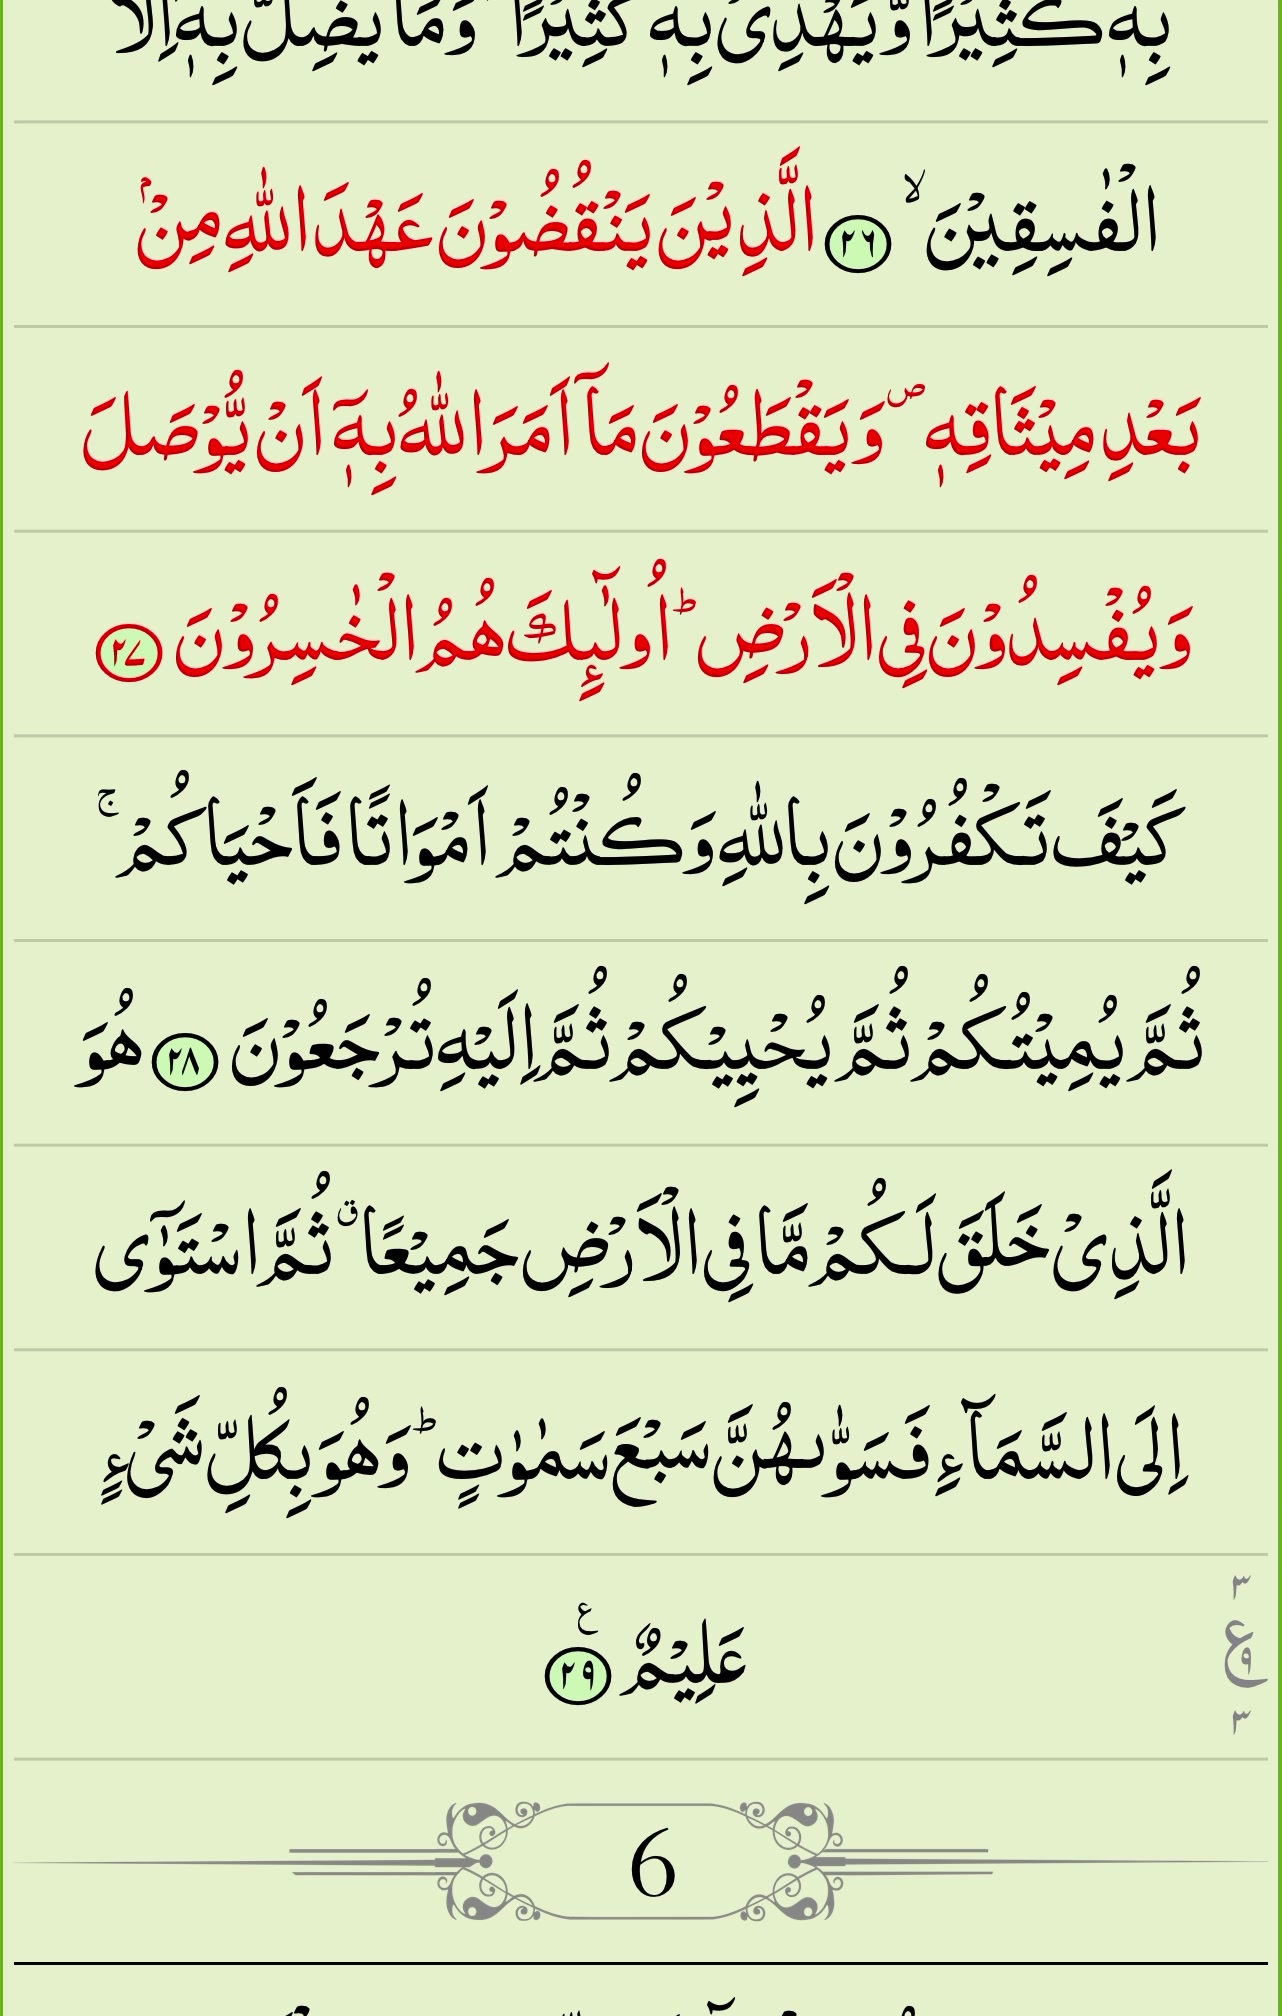 بِهٖ كَثِيْرًا وَّيَهْدِىْ بِهٖ كَثِيْرًا ؕ وَمَا يُضِلُّ بِهٖٓ اِلَّا
الْفٰسِقِيْنَ ۙ‏ ﴿۲۶﴾ الَّذِيْنَ يَنْقُضُوْنَ عَهْدَ اللّٰهِ مِنْۢ
بَعْدِ مِيْثَاقِهٖ ۖ وَيَقْطَعُوْنَ مَآ اَمَرَ اللّٰهُ بِهٖٓ اَنْ يُّوْصَلَ
وَيُفْسِدُوْنَ فِى الْاَرْضِ ؕ اُولٰٓٮِٕكَ هُمُ الْخٰسِرُوْنَ ﴿۲۷﴾
كَيْفَ تَكْفُرُوْنَ بِاللّٰهِ وَڪُنْتُمْ اَمْوَاتًا فَاَحْيَاکُمْ ۚ
ثُمَّ يُمِيْتُكُمْ ثُمَّ يُحْيِيْكُمْ ثُمَّ اِلَيْهِ تُرْجَعُوْنَ ﴿۲۸﴾ هُوَ
الَّذِىْ خَلَقَ لَـكُمْ مَّا فِى الْاَرْضِ جَمِيْعًا ق ثُمَّ اسْتَوٰٓى
اِلَى السَّمَآءِ فَسَوّٰٮهُنَّ سَبْعَ سَمٰوٰتٍ ؕ وَهُوَ بِكُلِّ شَىْءٍ
عَلِيْمٌ ﴿۲۹﴾ ع
۳
ع ۹
۳
6